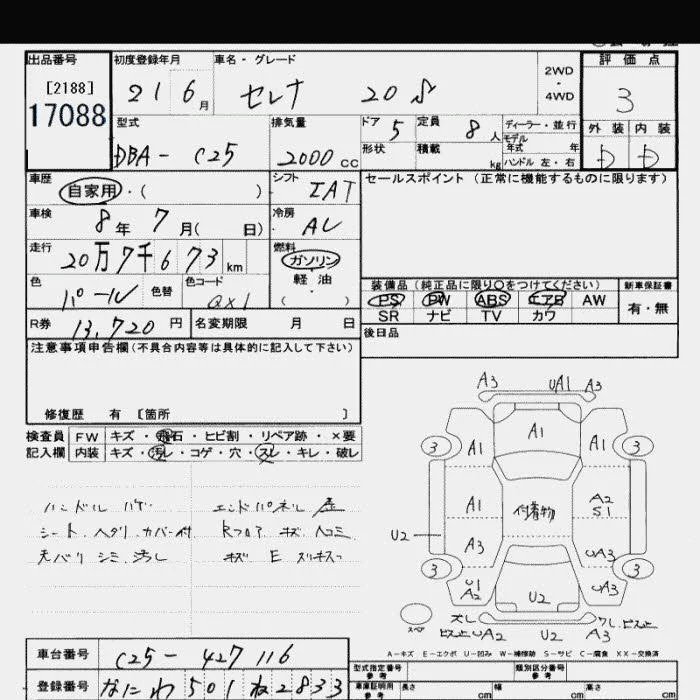 出品番号 初度登録年月 車名・グレード 評価点
[2188]
17088
21 6月 セレナ 20S 2WD・4WD 3
型式 排気量 ドア 5 定員 8人 ディーラー・並行 外装 内装
DBA- C25 2000cc 形状 積載 kg モデル年式 年 D D
ハンドル 左・右
車歴 自家用・( ) シフト IAT セールスポイント (正常に機能するものに限ります)
車検 8年 7月( 日) 冷房 AC
走行 20万7千673km 燃料 ガソリン 軽油 ( )
色 パール 色替 色コード QX1
装備品 (純正品に限り○をつけてください) 新車保証書
PS PW ABS エアB AW 有・無
SR ナビ TV カワ
R券 13,720円 名変期限 月 日 後日品
注意事項申告欄(不具合内容等は具体的に記入して下さい)
修復歴 有 [箇所 ]
検査員 FW キズ・飛石・ヒビ割・リペア跡・×要
記入欄 内装 キズ・汚レ・コゲ・穴・スレ・キレ・破レ
ハンドル ハゲ エンドパネル
シート ヘタリ カバー付 Rフロア キズ ヘコミ
天バリ シミ 汚レ キズ E
A3 UA1 A3
3 A1 A1 A1 3
A1 付着物 A2
S1
U2 A3 UA3
3 U1
A2 U2 UA3 3
スペア UA2 U2 A3
A-キズ E-エクボ U-凹み W-補修跡 S-サビ C-腐食 XX-交換済
車台番号 C25-427116
型式指定番号 類別区分番号
登録番号 なにわ 501 ね 2833
車庫証明用参考 長さ cm 幅 cm 高さ cm